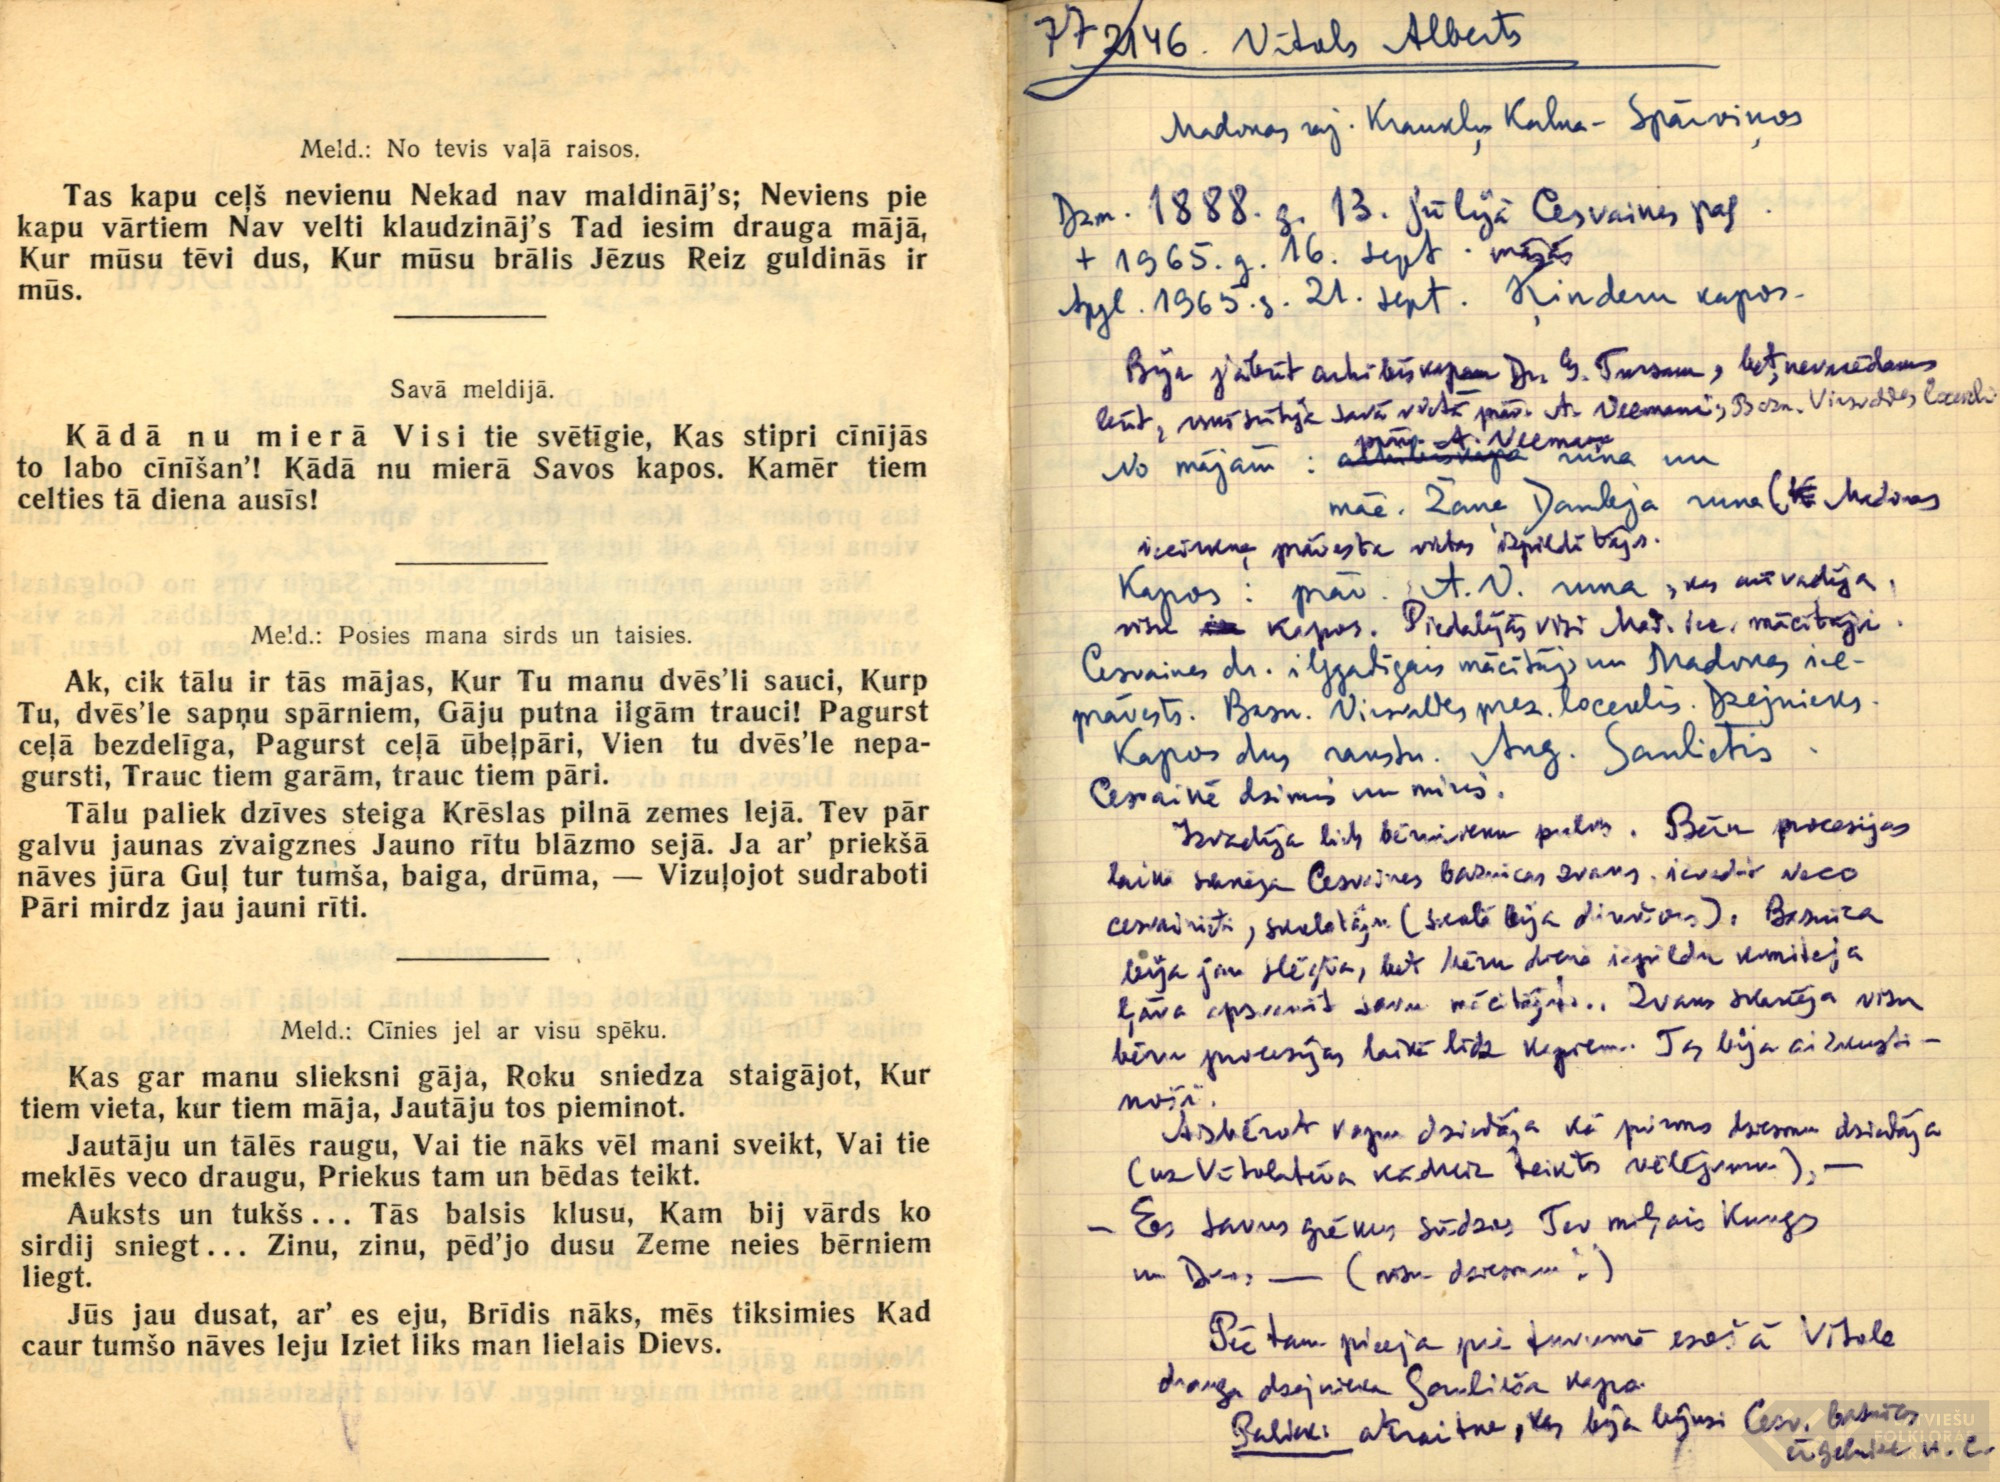 Meld.: No tevis vaļā raisos.
Tas kapu ceļš nevienu Nekad nav maldināj's; Neviens pie
kapu vārtiem Nav velti klaudzināj's Tad iesim drauga mājā,
Kur mūsu tēvi dus, Kur mūsu brālis Jēzus Reiz guldinās ir
mūs.
Savā meldijā.
Kādā nu mierā Visi tie svētīgie, Kas stipri cīnījās
to labo cīnīšan'! Kādā nu mierā Savos kapos. Kamēr tiem
celties tā diena ausīs!
Meld.: Posies mana sirds un taisies.
Ak, cik tālu ir tās mājas, Kur Tu manu dvēs'li sauci, Kurp
Tu, dvēs'le sapņu spārniem, Gāju putna ilgām trauci! Pagurst
ceļā bezdelīga, Pagurst ceļā ūbeļpāri, Vien tu dvēs'le nepa-
gursti, Trauc tiem garām, trauc tiem pāri.
Tālu paliek dzīves steiga Krēslas pilnā zemes lejā. Tev pār
galvu jaunas zvaigznes Jauno rītu blāzmo sejā. Ja ar' priekšā
nāves jūra Guļ tur tumša, baiga, drūma, — Vizuļojot sudraboti
Pāri mirdz jau jauni rīti.
Meld.: Cīnies jel ar visu spēku.
Kas gar manu slieksni gāja, Roku sniedza staigājot, Kur
tiem vieta, kur tiem māja, Jautāju tos pieminot.
Jautāju un tālēs raugu, Vai tie nāks vēl mani sveikt, Vai tie
meklēs veco draugu, Priekus tam un bēdas teikt.
Auksts un tukšs... Tās balsis klusu, Kam bij vārds ko
sirdij sniegt... Zinu, zinu, pēd'jo dusu Zeme neies bērniem
liegt.
Jūs jau dusat, ar' es eju, Brīdis nāks, mēs tiksimies Kad
caur tumšo nāves leju Iziet liks man lielais Dievs.
77 2146. Vītols Alberts
Madonas raj. Kraukļu Kalna-Spārviņos
Dzm. 1888. g. 13. jūlijā Cesvaines pag.
+ 1965. g. 16. sept. mājās
Apgl. 1965. g. 21. sept. Ķinderu kapos.
Bija jābūt arhibīskapam Dr. G. Tursam, bet, nevarēdams
būt, savā vietā prāv. A. Bazn. Virsvaldes locekli
prāv. A.
No mājām: runa un
māc. Žaņa runa (Madonas
iecirkņa prāvesta vietas izpildītājs.
Kapos: prāv. A.V. runa, kas arī vadīja
visu kapos. Piedalījās visi Mad. iec. mācītāji.
Cesvaines dr. ilggadīgais mācītājs un Madonas iec-
prāvests. Bazn. Virsvaldes prez. loceklis. Dzejnieks.
Kapos dus rakstn. Aug. Saulietis.
Cesvainē dzimis un miris.
Izvadīja liels bērinieku pulks. Bēru procesijas
laikā skanēja Cesvaines baznīcas zvans. veco
skolotāju (skolā bija direktors). Baznīca
bija jau slēgta, bet bēru dienā izpildu komiteja
ļāva savu mācītāju. Zvans skanēja visu
bēru procesijas laikā līdz kapiem. Tas bija aizkusti-
noši.
Aizbērot kapu dziedāja kā pirmo dziesmu dziedāja
(uz Vītolatēva kādreiz teikto vēlējumu), —
— Es savus grēkus sūdzos Tev mīļais Kungs
un Dievs — (visu dziesmu)
Pēc tam piegāja pie tuvumā esošā Vītola
drauga dzejnieka Saulieša kapa.
Paliek: atraitne, kas bija bijusi Cesv. baznīcas
ērģelniece
LATVIEŠU
FOLKLORAS
KRĀTUVE